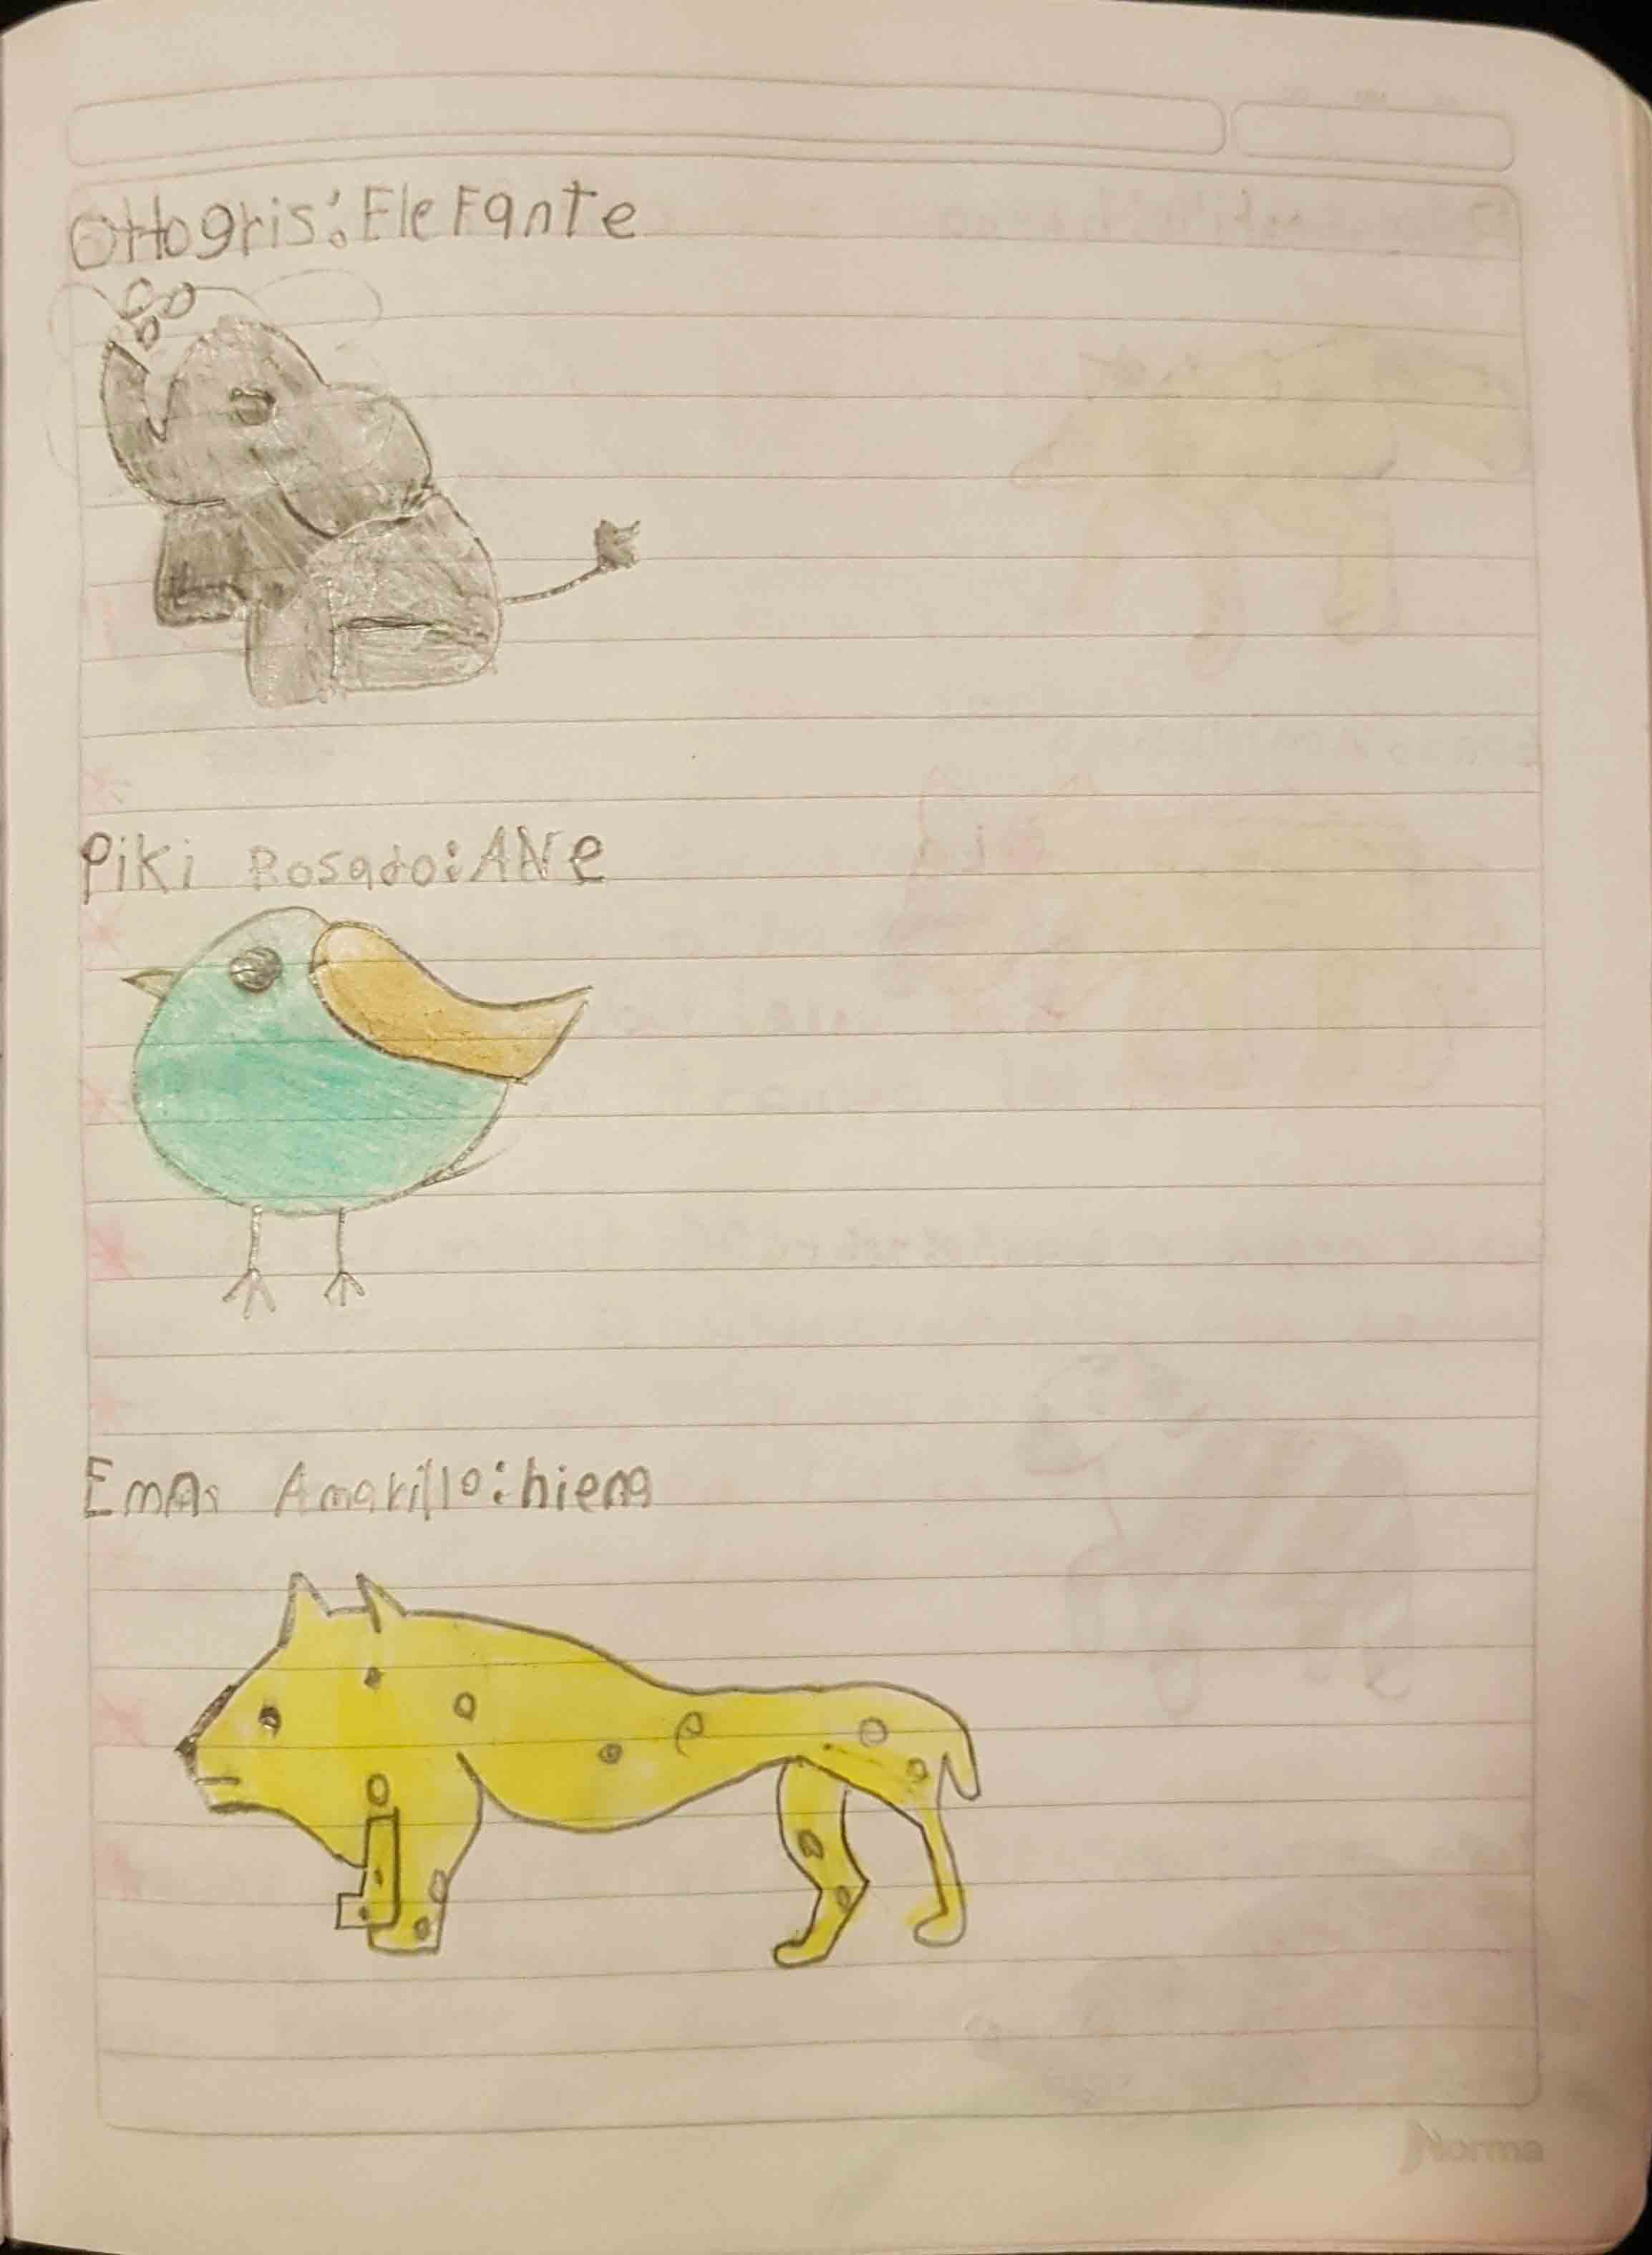 Ottogris: Elefante
Piki Rosado: AVe
Emas Amarillo: hiena
Norma